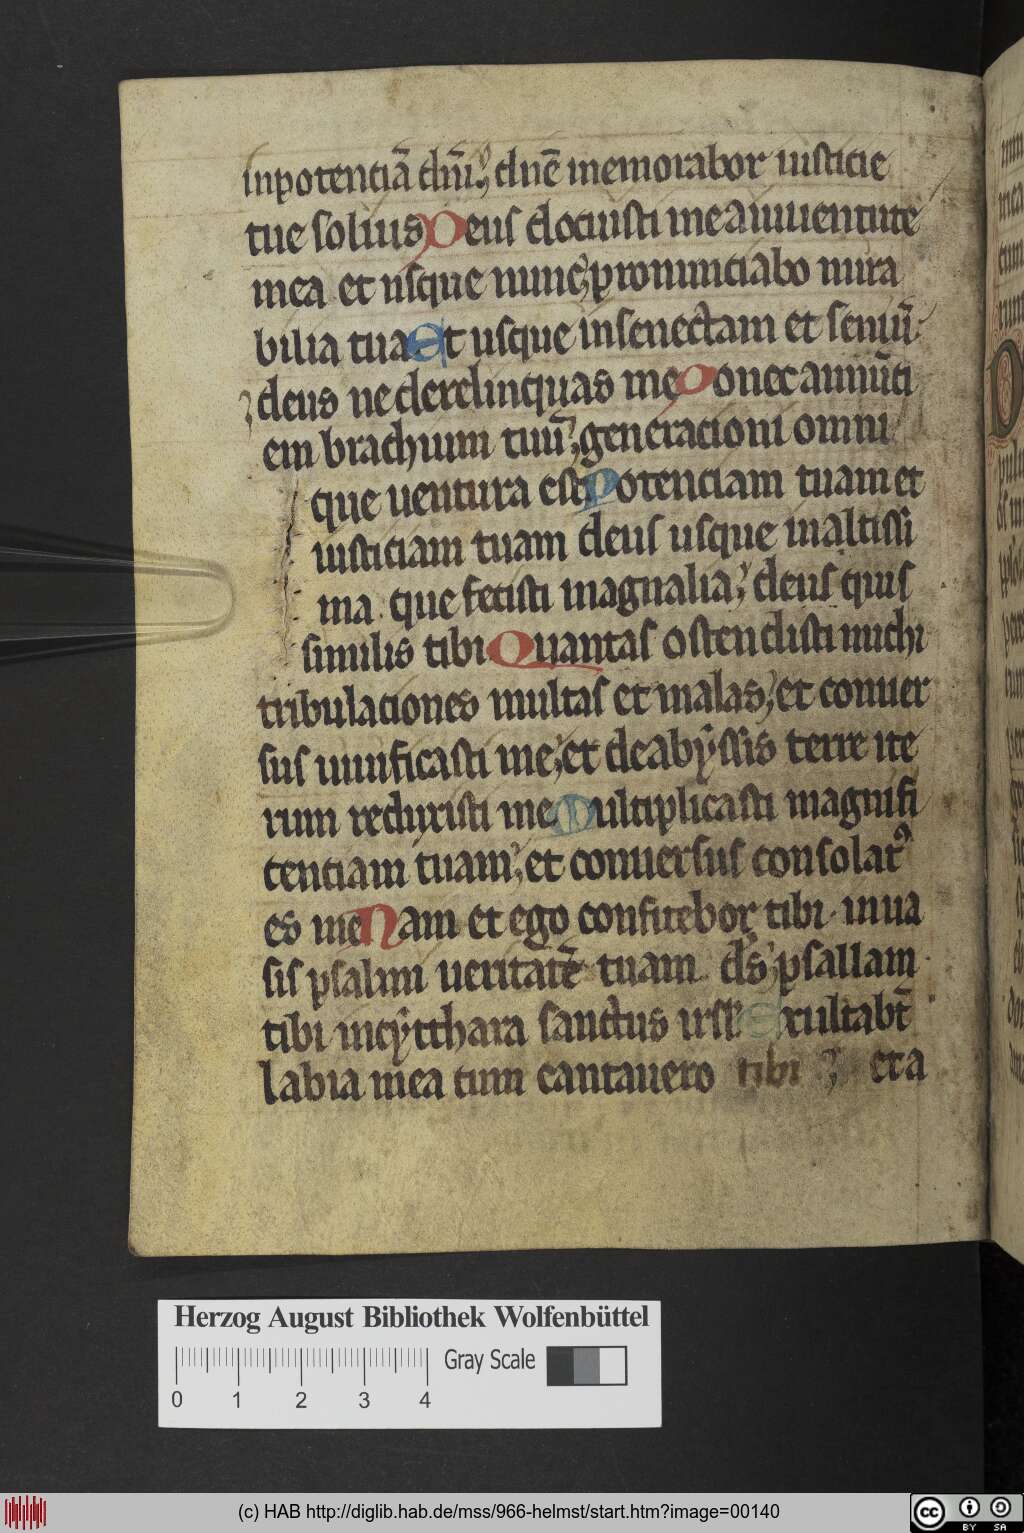 inpotenciā dn̄i; dn̄e memorabor iusticie
tue solius Deus docuisti me a iuuentute
mea et usque nunc; pronunciabo mira
bilia tua Et usque in senectam et seniū·
deus ne derelinquas me Donec annūti
em brachium tuū; generacioni omni
que uentura est Potenciam tuam et
iusticiam tuam deus usque in altissi
ma que fecisti magnalia; deus quis
similis tibi Quantas ostendisti michi
tribulaciones multas et malas; et conuer
sus uiuificasti me; et de abẏssis terre ite
rum reduxisti me Multiplicasti magnifi
cenciam tuam; et conuersus consolat᾽
es me Nam et ego confitebor tibi in ua
sis psalmi ueritatē tuam ds̄; psallam
tibi in cẏtthara sanctus isrl̄ Exultabt̄
labia mea cum cantauero tibi ; et a
Herzog August Bibliothek Wolfenbüttel
Gray Scale
0 1 2 3 4
(c) HAB http://diglib.hab.de/mss/966-helmst/start.htm?image=00140
cc BY SA